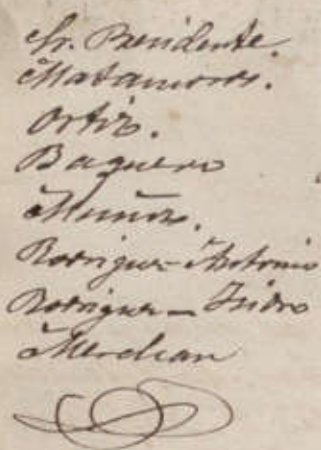 Sr. Presidente.
Matamoros.
Ortiz.
Baquero
Muñoz.
Rodriguez Antonio
Rodriguez — Isidro
Merchan